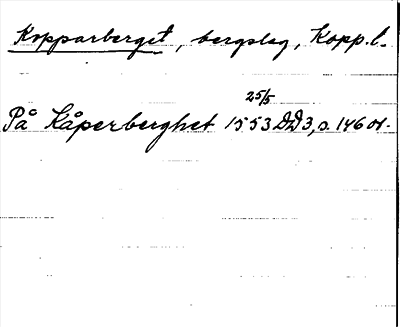 Kopparberget, bergslag, Kopp.l.
25/5
På Kåperberghet 1553 DD3, s. 146 or.